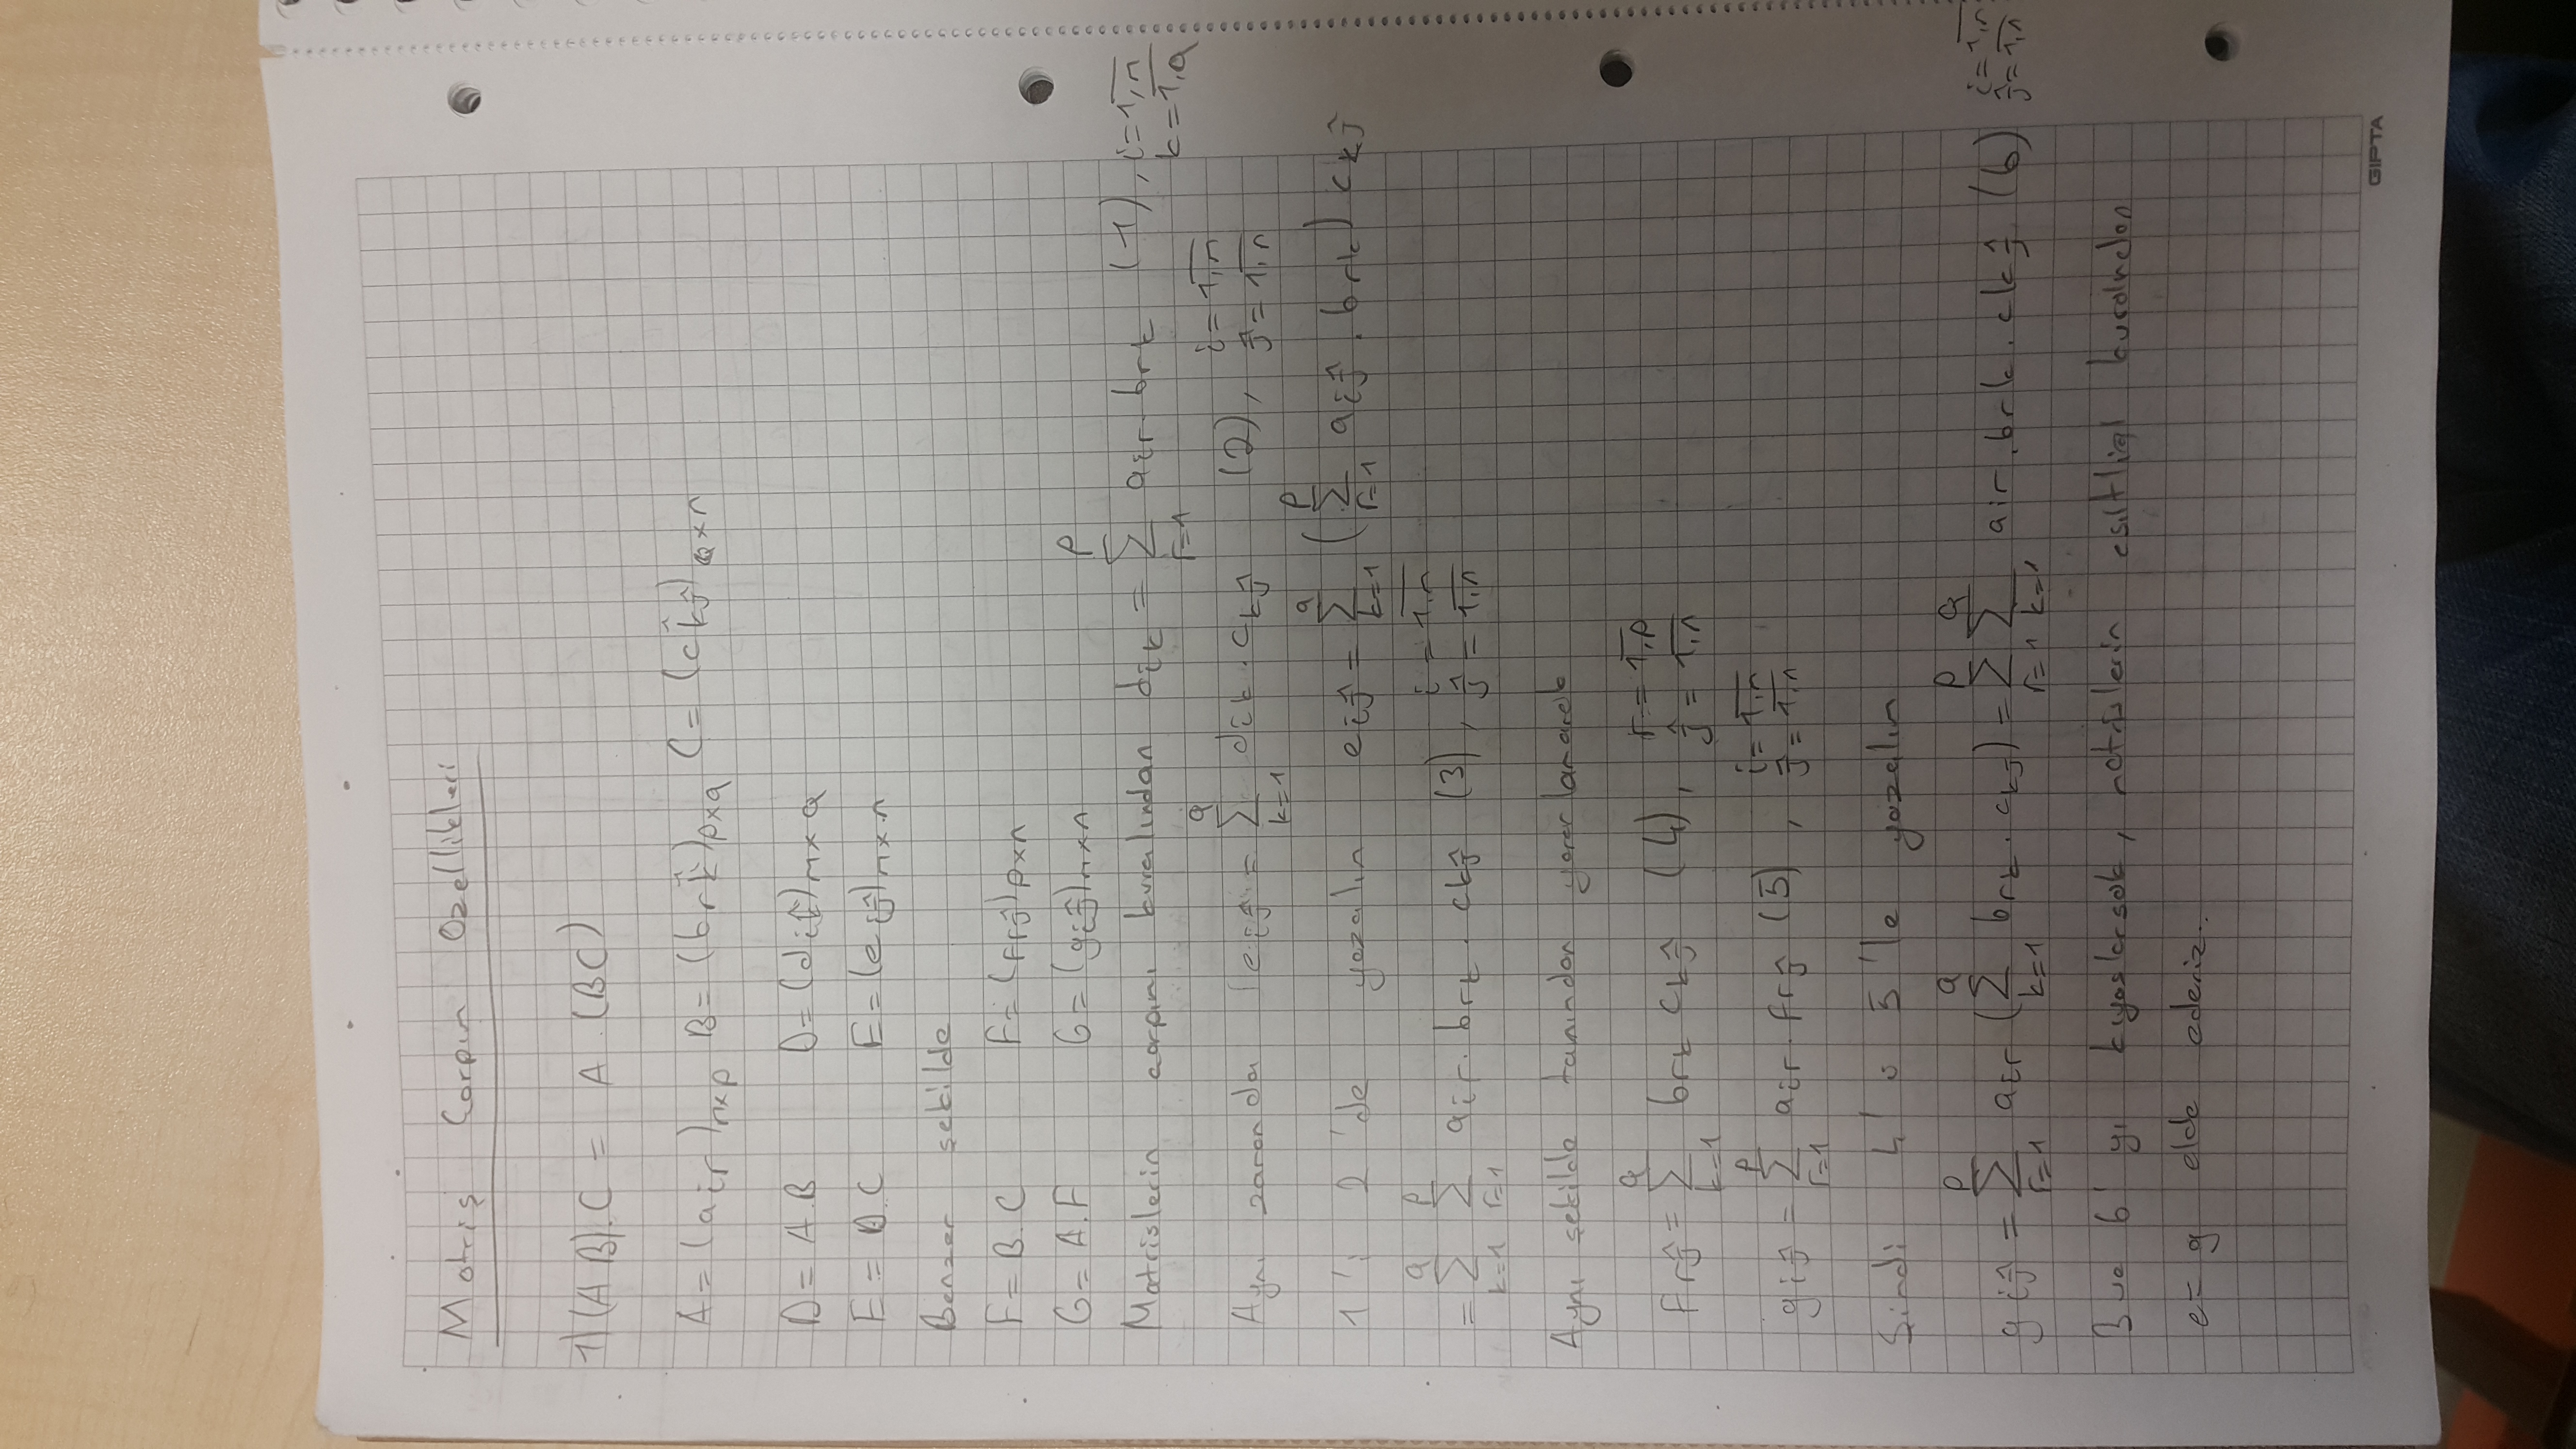 Matris Çarpım Özellikleri
1) (A B).C = A.(BC)
A = (air)mxp B = (brk)pxq C = (ckj)qxn
D = A.B D = (dik)mxq
E = D.C E = (eij)mxn
Benzer şekilde
F = B.C F = (frj)pxn
G = A.F G = (gij)mxn
Matrislerin çarpımı kuralından dik = Σ_{r=1}^{p} air.brk (1), i=1,m k=1,q
Aynı zamanda eij = Σ_{k=1}^{q} dik.ckj (2), i=1,m j=1,n
1'i 2'de yazalım eij = Σ_{k=1}^{q} (Σ_{r=1}^{p} aij.brk) ckj
= Σ_{k=1}^{q} Σ_{r=1}^{p} air.brk.ckj (3), i=1,m j=1,n
Aynı şekilde tanımdan yararlanarak
frj = Σ_{k=1}^{q} brk ckj (4), r=1,p j=1,n
gij = Σ_{r=1}^{p} air.frj (5), i=1,m j=1,n
Şimdi 4'ü 5'le yazalım
gij = Σ_{r=1}^{p} air (Σ_{k=1}^{q} brk.ckj) = Σ_{r=1}^{p} Σ_{k=1}^{q} air.brk.ckj (6) i=1,m j=1,n
3 ve 6'yı kıyaslarsak, matrislerin eşitliği kuralından
e = g elde ederiz..
GIPTA